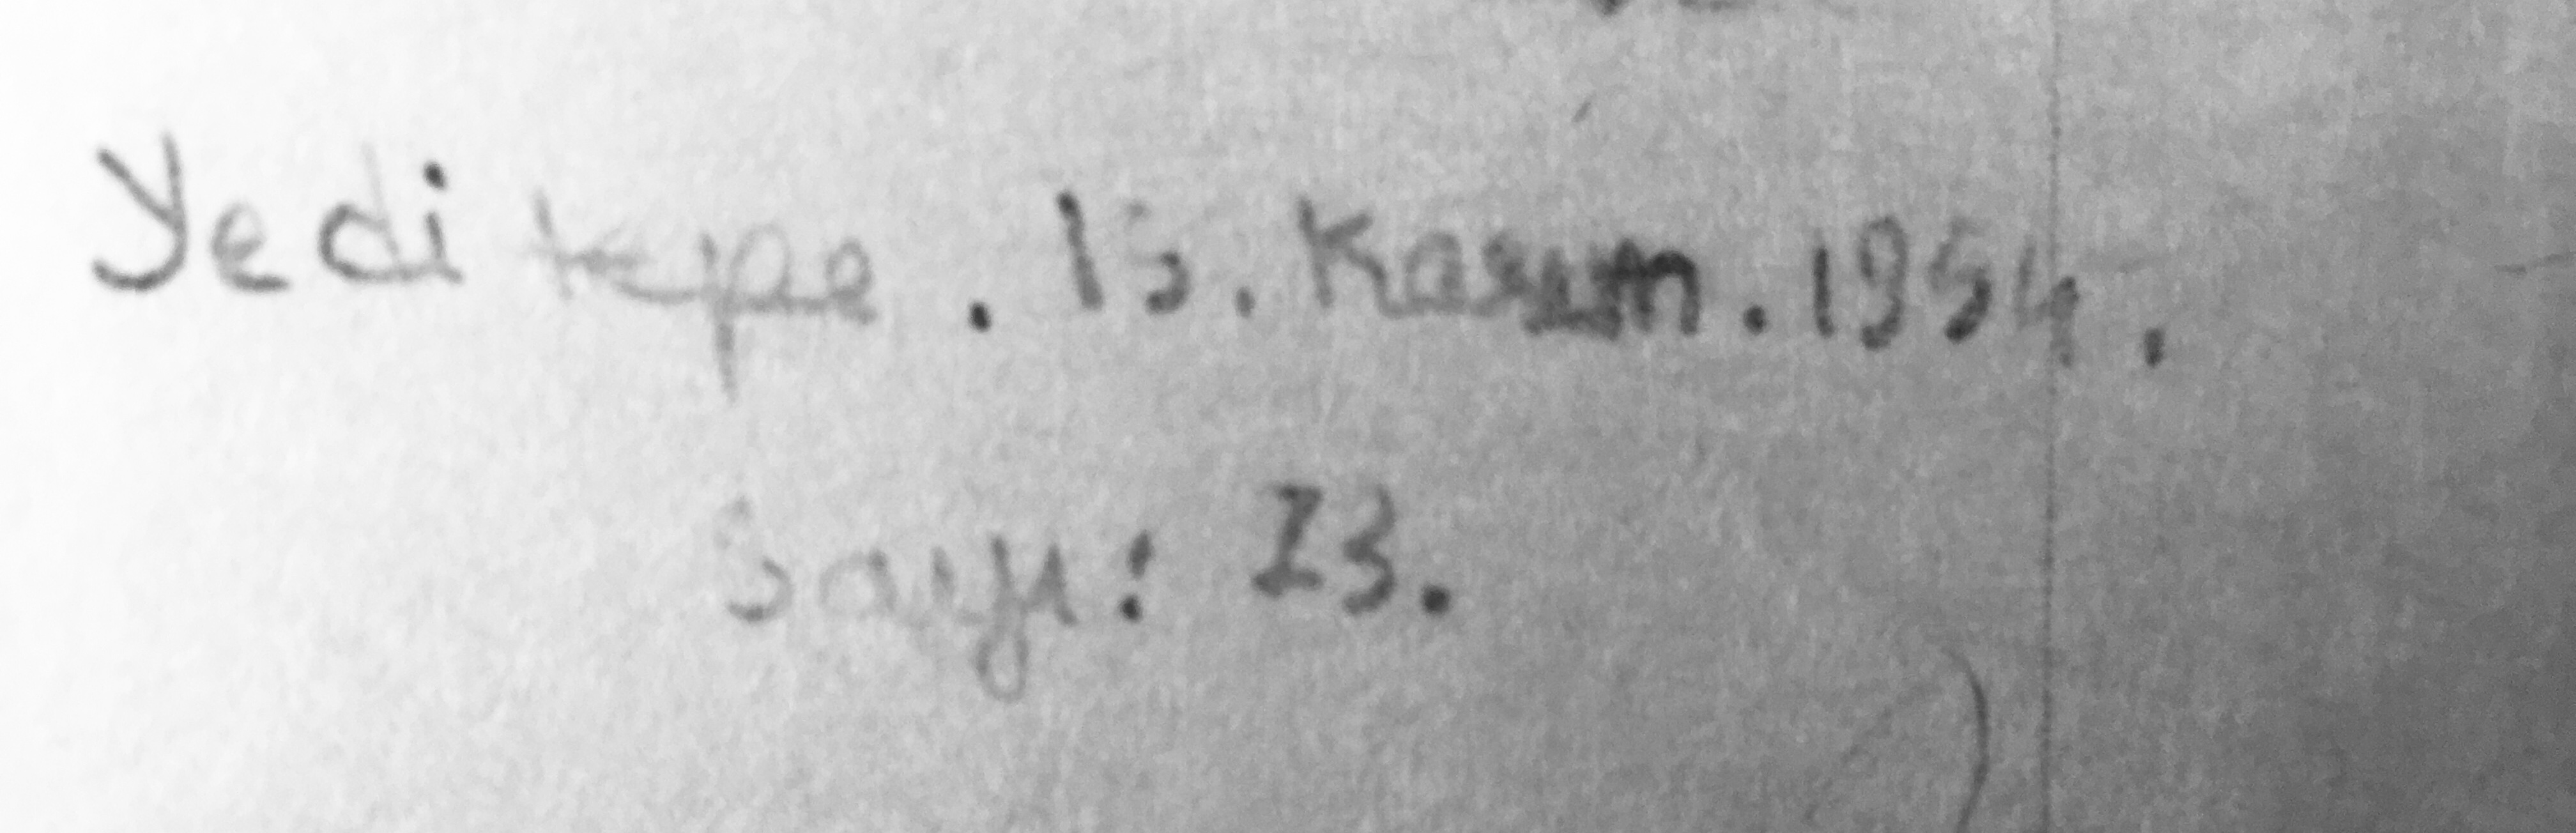 Yedi tepe . 15. Kasım. 1954.
Sayı: 73.